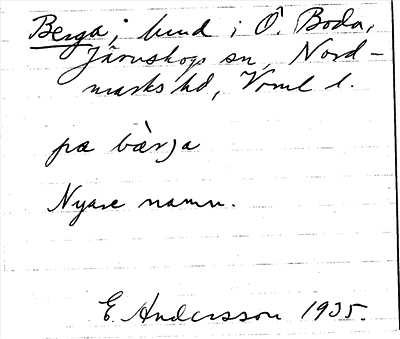 Berga; lund i Ö. Boda,
Järnskogs sn, Nord-
marks hd, Vrml l.
pα bὰrja
Nyare namn.
E. Andersson 1935.